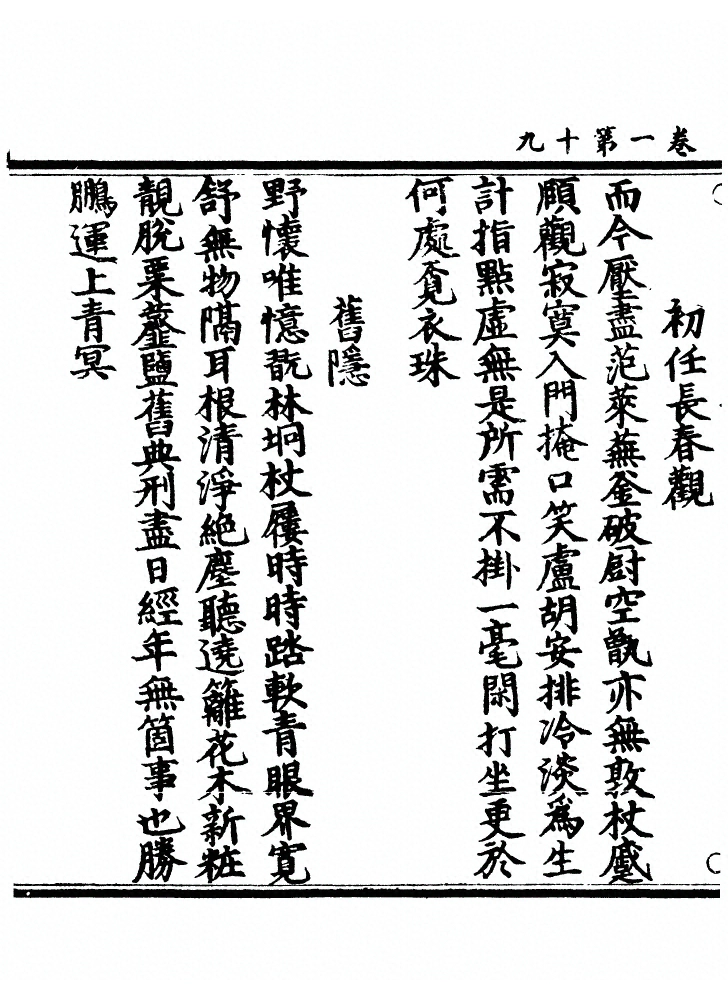 卷一第十九
初任長春觀
而今壓盡范萊蕪釜破厨空甑亦無敦杖蹙
頤觀寂寞入門掩口笑盧胡安排冷淡爲生
計指點虛無是所需不掛一毫閑打坐更於
何處覔衣珠
舊隱
野懷唯憶翫林坰杖屨時時踏軟青眼界寬
舒無物隔耳根清淨絕塵聽遶籬花木新粧
靚脫粟虀鹽舊典刑盡日經年無箇事也勝
鵬運上青冥